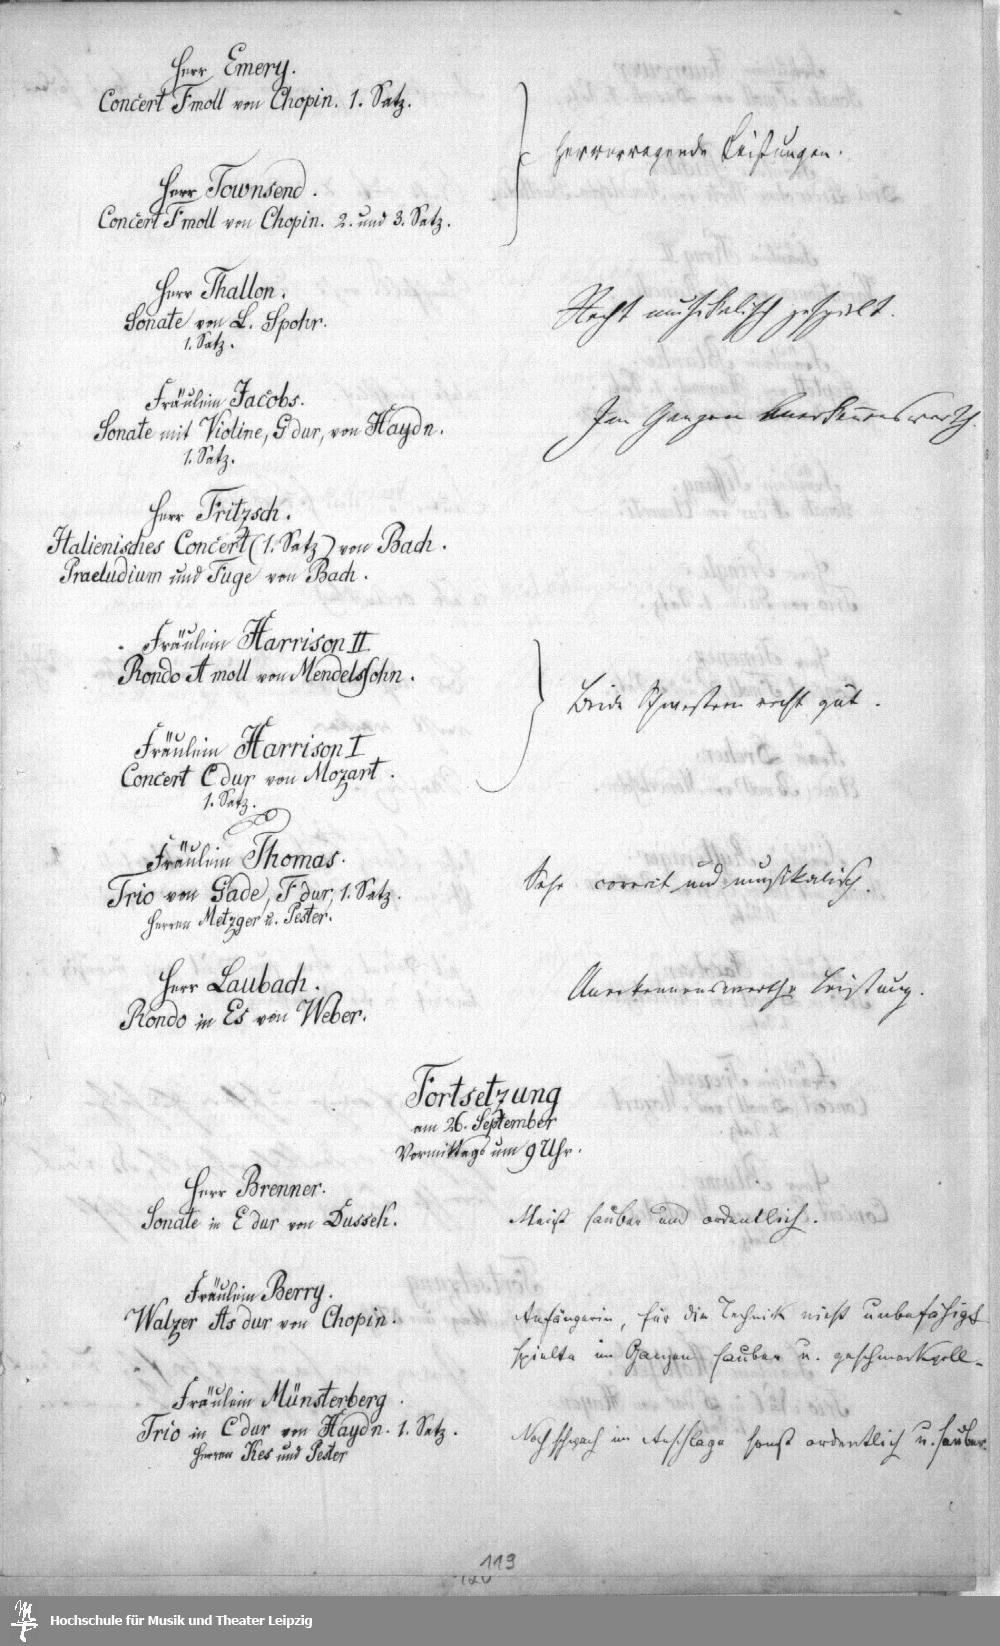 Herr Emery.
Concert Fmoll von Chopin. 1. Satz.
hervorragende Leistungen.
Herr Townsend.
Concert Fmoll von Chopin. 2. und 3. Satz.
Herr Thallon.
Sonate von L. Spohr.
1. Satz.
Recht musikalisch gespielt.
Fräulein Jacobs.
Sonate mit Violine, G dur, von Haydn.
1. Satz.
Im Ganzen anerkennenswerth.
Herr Fritzsch.
Italienisches Concert (1. Satz) von Bach.
Praeludium und Fuge von Bach.
Fräulein Harrison II.
Rondo A moll von Mendelssohn.
Beide Schwestern recht gut.
Fräulein Harrison I
Concert C dur von Mozart.
1. Satz.
Fräulein Thomas.
Trio von Gade, F dur, 1. Satz.
Herren Metzger u. Pester.
Sehr correct und musikalisch.
Herr Laubach.
Rondo in Es von Weber.
Anerkennenswerthe Leistung.
Fortsetzung
am 26. September
Vormittags um 9 Uhr.
Herr Brenner.
Sonate in E dur von Dussek.
Meist sauber und ordentlich.
Fräulein Berry.
Walzer As dur von Chopin.
Anfängerin, für die Technik nicht unbefähigt
spielte im Ganzen sauber u. geschmackvoll.
Fräulein Münsterberg.
Trio in C dur von Haydn. 1. Satz.
Herren Kes und Pester
Noch schwach im Anschlage sonst ordentlich u. sauber.
119
Hochschule für Musik und Theater Leipzig